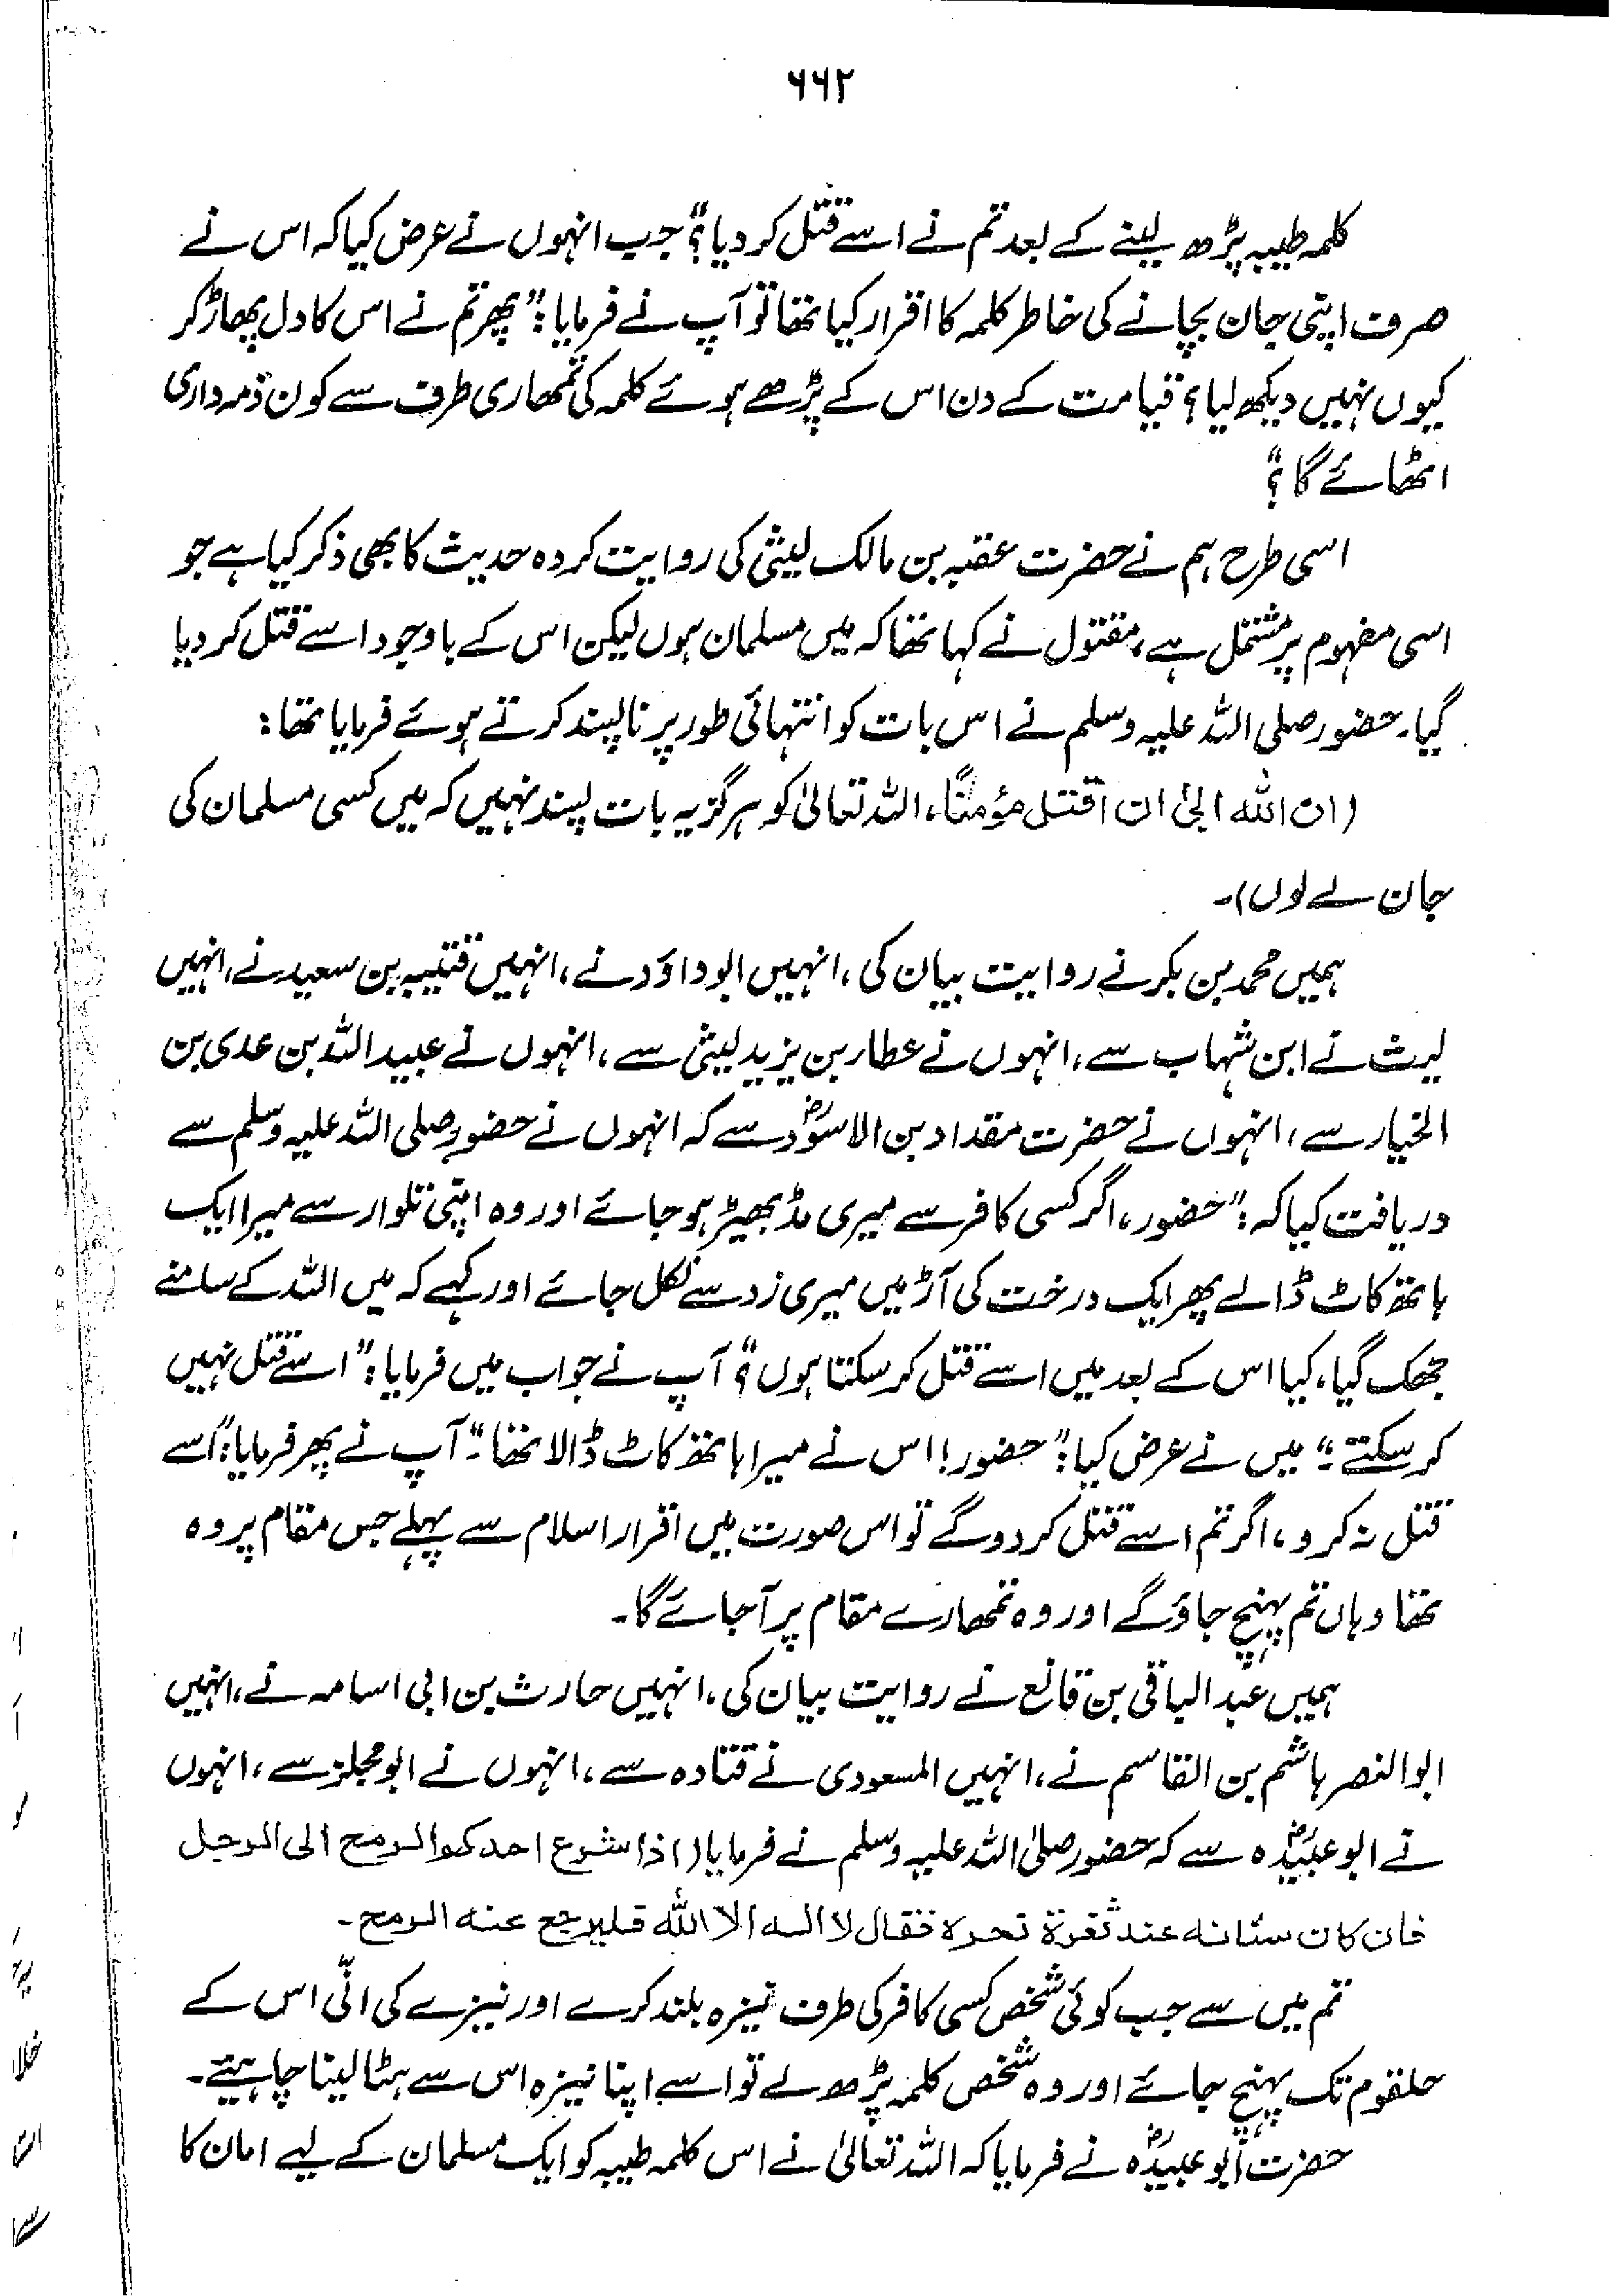 ۶۶۲
کلمہ طیبہ پڑھ لینے کے بعد تم نے اسے قتل کر دیا؟" جب انہوں نے عرض کیا کہ اس نے
صرف اپنی جان بچانے کی خاطر کلمہ کا اقرار کیا تھا تو آپ نے فرمایا: "پھر تم نے اس کا دل پھاڑ کر
کیوں نہیں دیکھ لیا؟ قیامت کے دن اس کے پڑھے ہوئے کلمہ کی تمھاری طرف سے کون ذمہ داری
اٹھائے گا؟"
اسی طرح ہم نے حضرت عقبہ بن مالک لیثیؓ کی روایت کردہ حدیث کا بھی ذکر کیا ہے جو
اسی مفہوم پر مشتمل ہے، مقتول نے کہا تھا کہ میں مسلمان ہوں لیکن اس کے باوجود اسے قتل کر دیا
گیا۔ حضور صلی اللہ علیہ وسلم نے اس بات کو انتہائی طور پر ناپسند کرتے ہوئے فرمایا تھا:
(ان الله ابیٰ ان اقتل مؤمناً، اللہ تعالیٰ کو ہرگز یہ بات پسند نہیں کہ میں کسی مسلمان کی
جان لے لوں)۔
ہمیں محمد بن بکر نے روایت بیان کی، انہیں ابوداؤد نے، انہیں قتیبہ بن سعید نے، انہیں
لیث نے ابن شہاب سے، انہوں نے عطاء بن یزید لیثی سے، انہوں نے عبید اللہ بن عدی بن
الخیار سے، انہوں نے حضرت مقداد بن الاسودؓ سے کہ انہوں نے حضور صلی اللہ علیہ وسلم سے
دریافت کیا کہ: "حضور، اگر کسی کافر سے میری مڈبھیڑ ہو جائے اور وہ اپنی تلوار سے میرا ایک
ہاتھ کاٹ ڈالے پھر ایک درخت کی آڑ میں میری زد سے نکل جائے اور کہے کہ میں اللہ کے سامنے
جھک گیا، کیا اس کے بعد میں اسے قتل کر سکتا ہوں؟" آپ نے جواب میں فرمایا: "اسے قتل نہیں
کر سکتے۔" میں نے عرض کیا: "حضور! اس نے میرا ہاتھ کاٹ ڈالا تھا۔" آپ نے پھر فرمایا: "اسے
قتل نہ کرو، اگر تم اسے قتل کر دو گے تو اس صورت میں اقرار اسلام سے پہلے جس مقام پر وہ
تھا وہاں تم پہنچ جاؤ گے اور وہ تمھارے مقام پر آجائے گا۔
ہمیں عبد الباقی بن قانع نے روایت بیان کی، انہیں حارث بن ابی اسامہ نے، انہیں
ابوالنصر ہاشم بن القاسم نے، انہیں المسعودی نے قتادہ سے، انہوں نے ابومجلز سے، انہوں
نے ابوعبیدؓہ سے کہ حضور صلیٰ اللہ علیہ وسلم نے فرمایا (اذا شرع احدکم الرمح الی الرجل
فان کان سنانه عند ثغرة نحره فقال لا اله الا الله فلیرجع عنه الرمح۔
تم میں سے جب کوئی شخص کسی کافر کی طرف نیزہ بلند کرے اور نیزے کی انّی اس کے
حلقوم تک پہنچ جائے اور وہ شخص کلمہ پڑھ لے تو اسے اپنا نیزہ اس سے ہٹا لینا چاہیئے۔
حضرت ابوعبیدؓہ نے فرمایا کہ اللہ تعالیٰ نے اس کلمہ طیبہ کو ایک مسلمان کے لیے امان کا